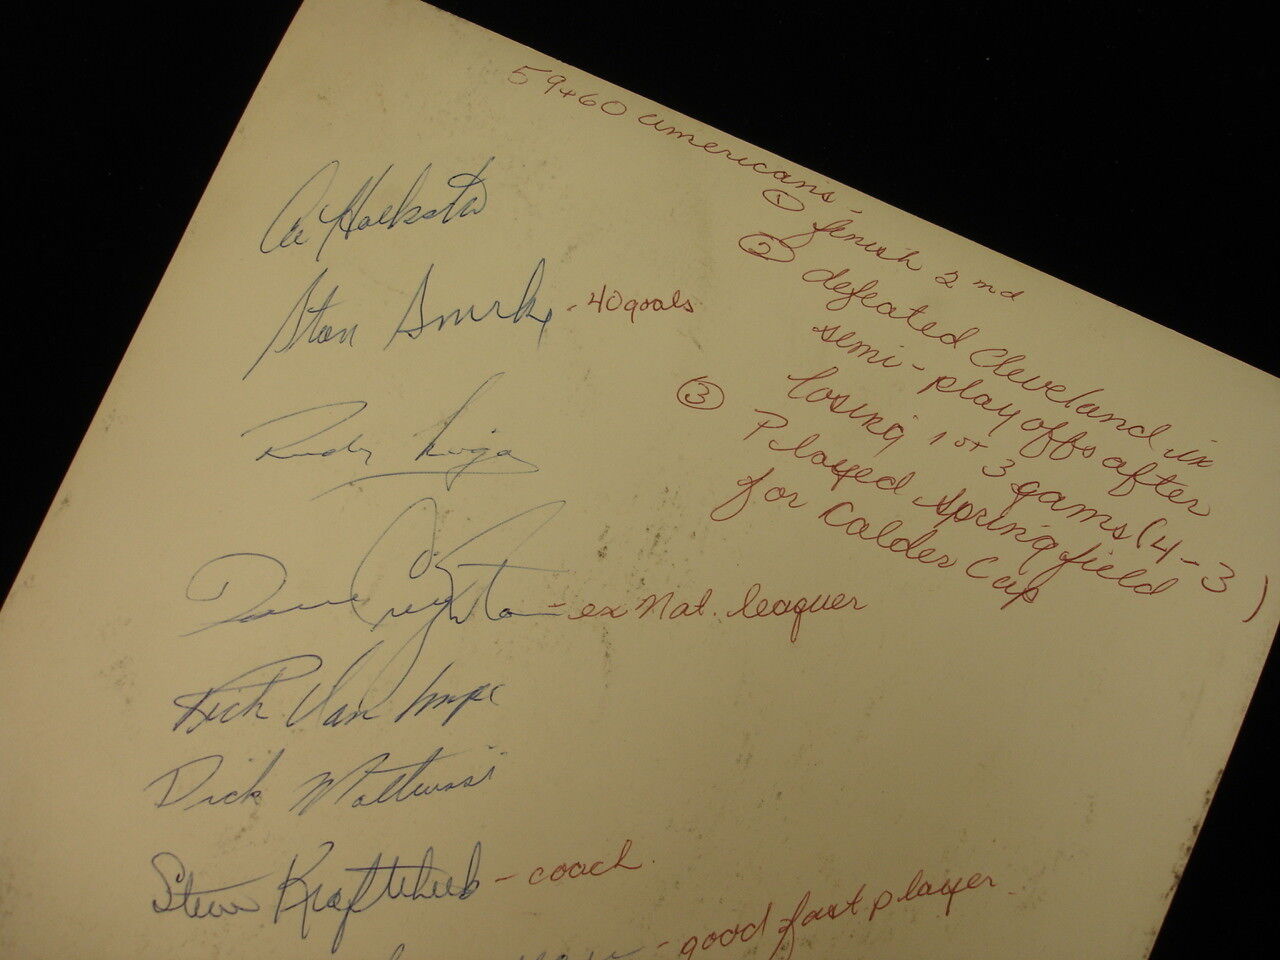 59+60 americans -
① finish 2nd
② defeated Cleveland in
semi-play offs after
losing 1st 3 games (4-3)
③ Played Springfield
for Calder Cup
Hoekstra
Stan Smrke - 40 goals
Rudy Migay
Dave Creighton - ex Nat. leaguer
Rick Van Impe
Dick Mattiussi
Steve Kraftcheck - coach
- good fast player